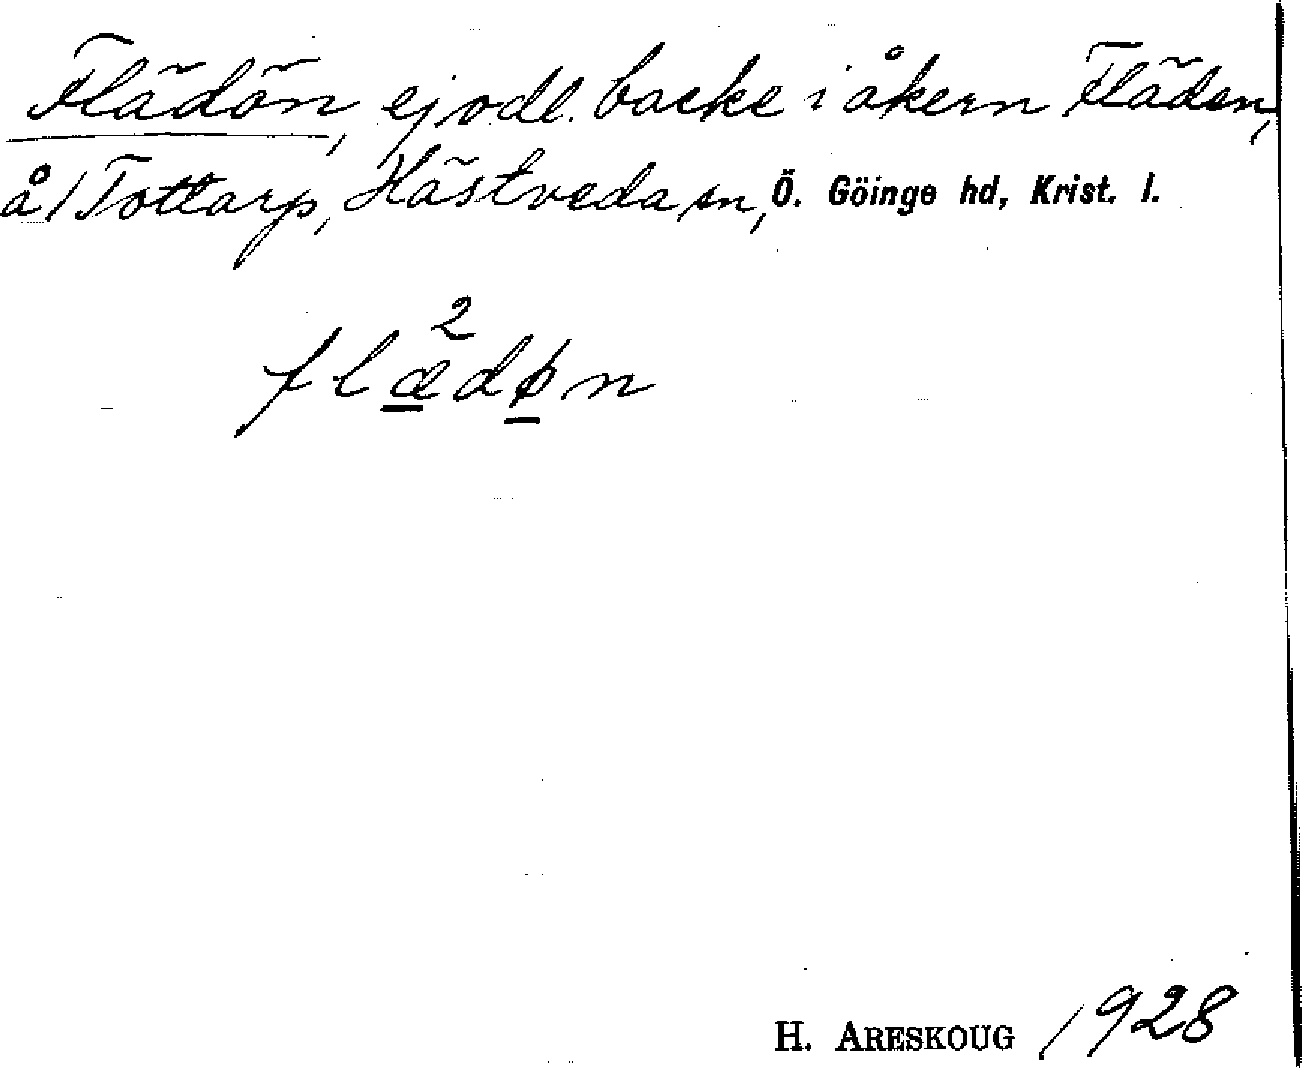 Flädön, ej odl. backe i åkern Fläden,
å 1 Tottarp, Hästveda sn, Ö. Göinge hd, Krist. l.
2
flædøn
H. ARESKOUG 1928